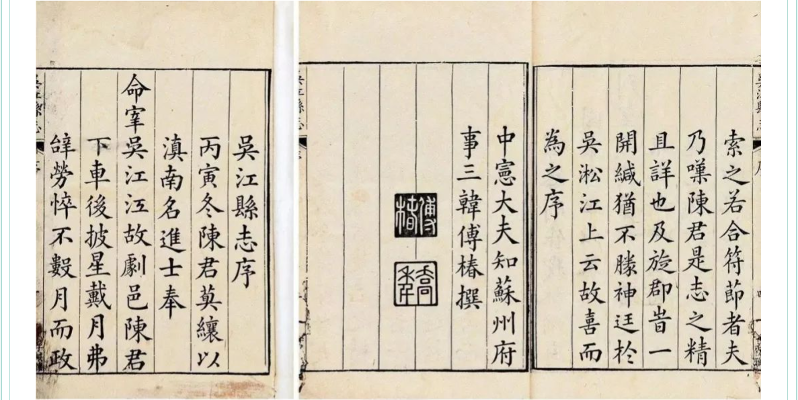 索之若合符節者夫
乃嘆陳君是志之精
且詳也及旋郡峕一
開緘猶不勝神迋於
吳淞江上云故喜而
為之序
中憲大夫知蘇州府
事三韓傅椿撰
傅椿
吳江縣志
吳江縣志序
丙寅冬陳君莫纕以
滇南名進士奉
命宰吳江江故劇邑陳君
下車後披星戴月弗
辝勞悴不數月而政
吳江縣志
序